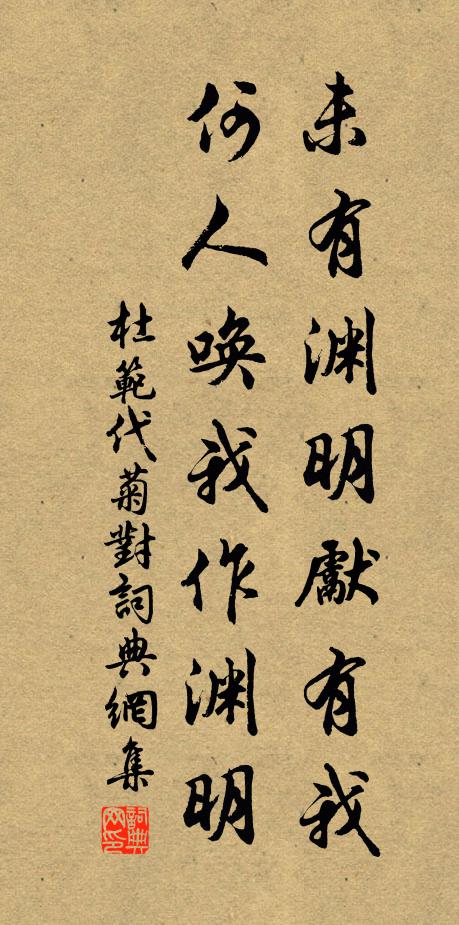 未有渊明獻有我
何人唤我作渊明
杜範代菊對詞典網集
詞典
网印